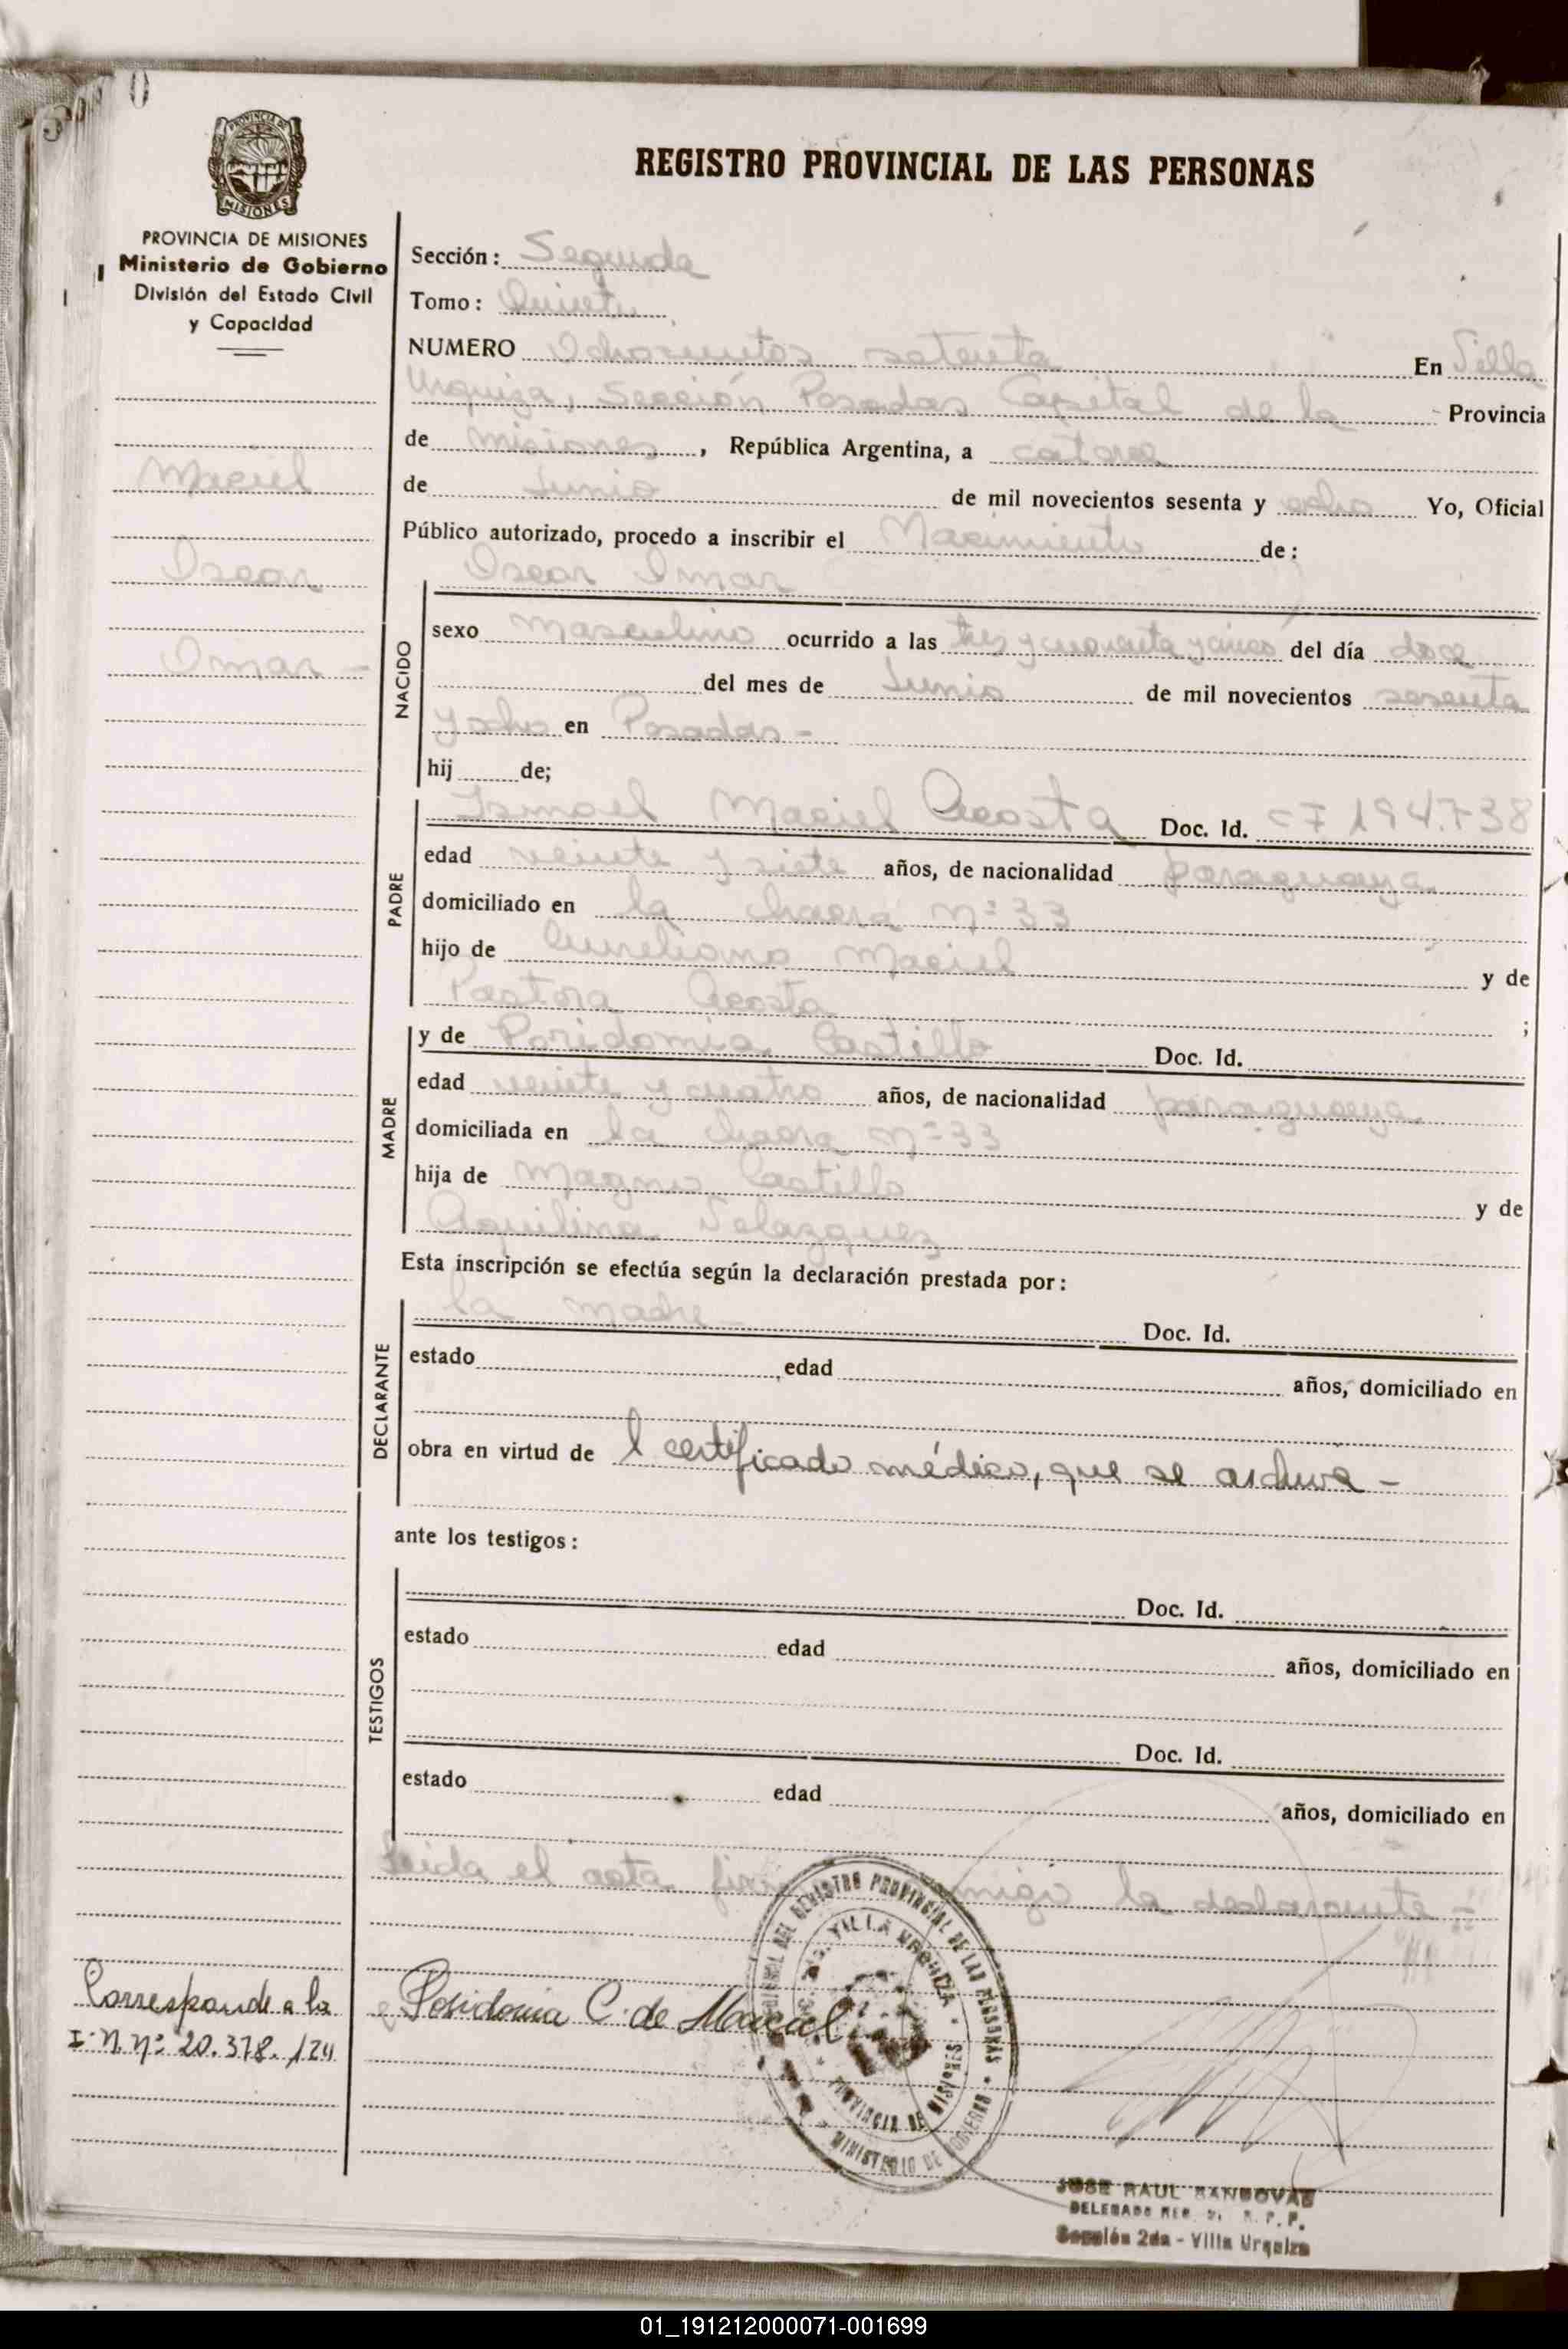 REGISTRO PROVINCIAL DE LAS PERSONAS
PROVINCIA DE
MISIONES
PROVINCIA DE MISIONES
Ministerio de Gobierno
División del Estado Civil
y Capacidad
Maciel
Oscar
Omar -
Sección: Segunda
Tomo: Quinto
NUMERO Ochocientos setenta En Villa
Urquiza, Sección Posadas Capital de la - Provincia
de Misiones, República Argentina, a catorce
de Junio de mil novecientos sesenta y ocho Yo, Oficial
Público autorizado, procedo a inscribir el Nacimiento de:
Oscar Omar
NACIDO
sexo Masculino ocurrido a las tres y cuarenta y cinco del día doce
del mes de Junio de mil novecientos sesenta
y ocho en Posadas -
hij de;
PADRE
Ismael Maciel Acosta Doc. Id. 194.738
edad veinte y siete años, de nacionalidad paraguaya
domiciliado en la chacra Nº 33
hijo de Aureliano Maciel y de
Pastora Acosta ;
MADRE
y de Castillo Doc. Id.
edad veinte y cuatro años, de nacionalidad paraguaya
domiciliada en la chacra Nº 33
hija de Magno Castillo y de
Aquilina Velazquez
Esta inscripción se efectúa según la declaración prestada por:
DECLARANTE
la madre - Doc. Id.
estado , edad años, domiciliado en
obra en virtud de l certificado médico, que se archiva -
ante los testigos:
TESTIGOS
Doc. Id.
estado edad años, domiciliado en
Doc. Id.
estado edad años, domiciliado en
Leida el acta la declarante -
Corresponde a la
I. N. Nº 20.378.124
Posidonia C. de Maciel
REGISTRO PROVINCIAL DE LAS PERSONAS
VILLA URQUIZA
PROVINCIA DE MISIONES
MINISTERIO DE GOBIERNO
JOSE RAUL SANDOVAL
DELEGADO R. P. P.
Sección 2da - Villa Urquiza
01_191212000071-001699